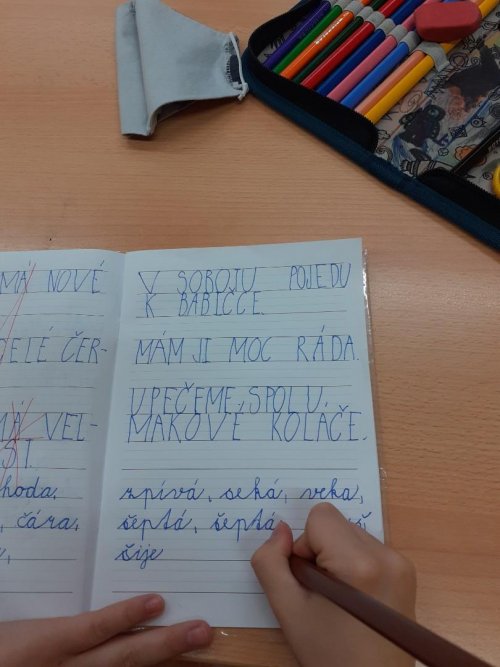 MÁ NOVÉ
ČER-
MÁ VEL-
čára,
V SOBOJU POJEDU
K BABIČCE.
MÁM JI MOC RÁDA.
UPEČEME SPOLU
MAKOVÉ KOLÁČE.
zpívá, seká, veka,
šeptá, šeptá,
šije